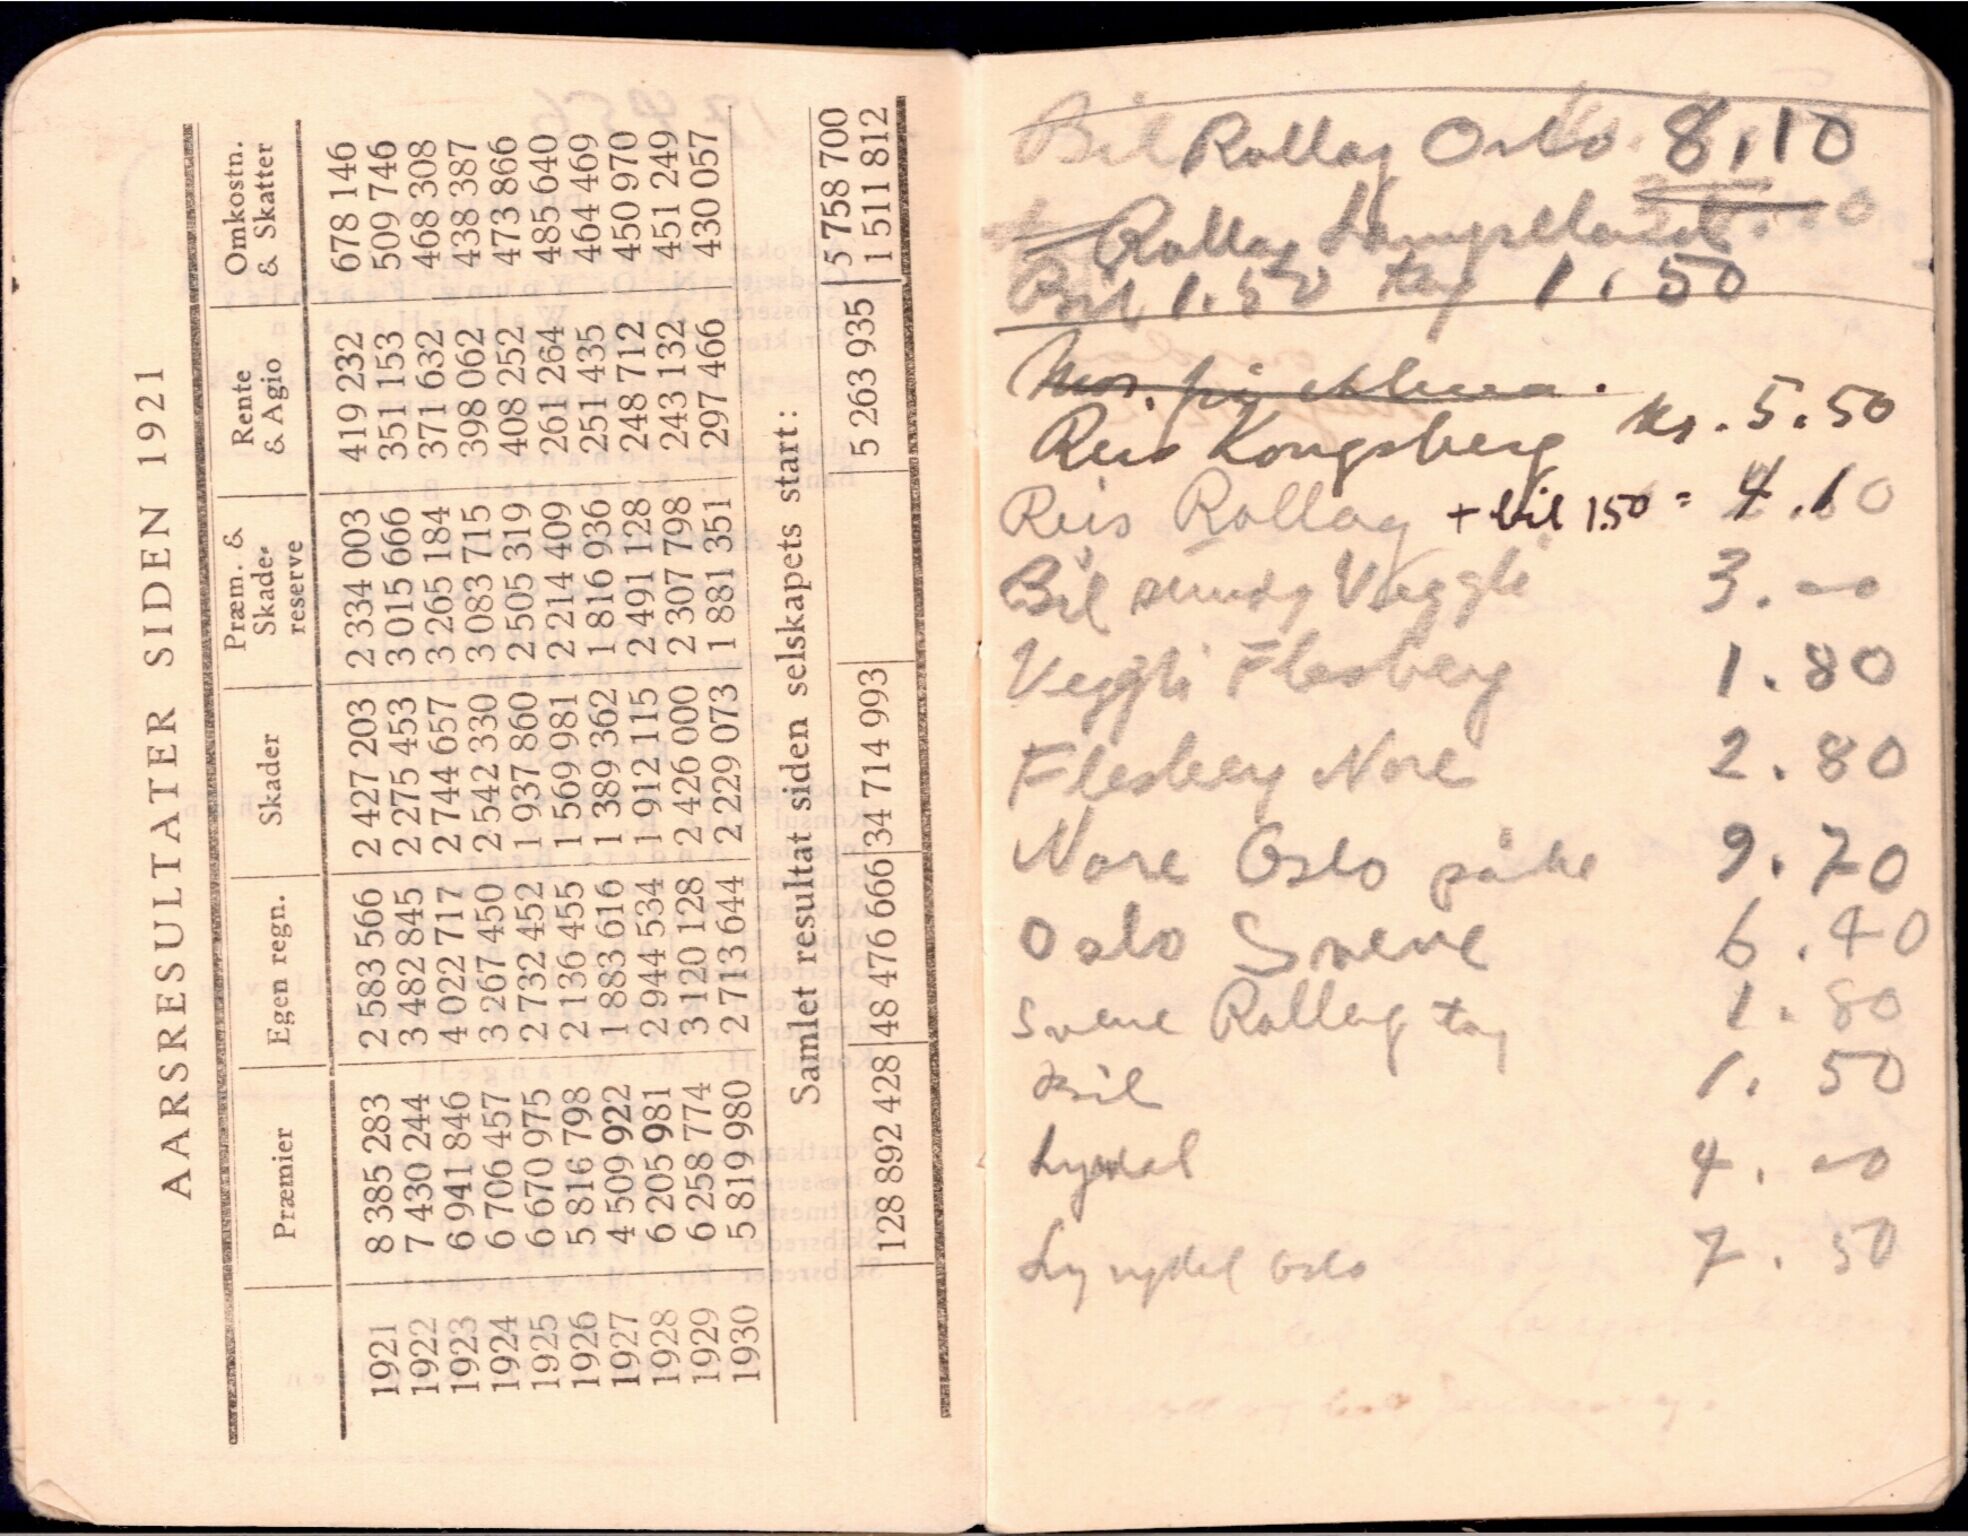 AARSRESULTATER SIDEN 1921
Præmier Egen regn. Skader Præm. & Skade-reserve Rente & Agio Omkostn. & Skatter
1921 8 385 283 2 583 566 2 427 203 2 334 003 419 232 678 146
1922 7 430 244 3 482 845 2 275 453 3 015 666 351 153 509 746
1923 6 941 846 4 022 717 2 744 657 3 265 184 371 632 468 308
1924 6 706 457 3 267 450 2 542 330 3 083 715 398 062 438 387
1925 6 670 975 2 732 452 1 937 860 2 505 319 408 252 473 866
1926 5 816 798 2 136 455 1 569 981 2 214 409 261 264 485 640
1927 4 509 922 1 883 616 1 389 362 1 816 936 251 435 464 469
1928 6 205 981 2 944 534 1 912 115 2 491 128 248 712 450 970
1929 6 258 774 3 120 128 2 426 000 2 307 798 243 132 451 249
1930 5 819 980 2 713 644 2 229 073 1 881 351 297 466 430 057
Samlet resultat siden selskapets start:
128 892 428 48 476 666 34 714 993 5 263 935 5 758 700
1 511 812
Bil Rollag Oslo 8,10
Rollag Lampeland
Bil 1.50 tog 1.50
Reis Kongsberg Kr. 5.50
Reis Rollag + bil 150 = 4.10
Bil Veggli 3.00
Veggli Flesberg 1.80
Flesberg Nore 2.80
Nore Oslo 9.70
Oslo Svene 6.40
Svene Rollag tog 1.80
Bil 1.50
Lyndal 4.00
Lyngdal Oslo 7.50